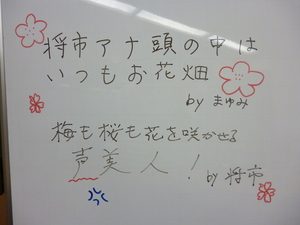 将市アナ頭の中は
いつもお花畑
by まゆみ
梅も桜も花を咲かせる
声美人!
by 将市